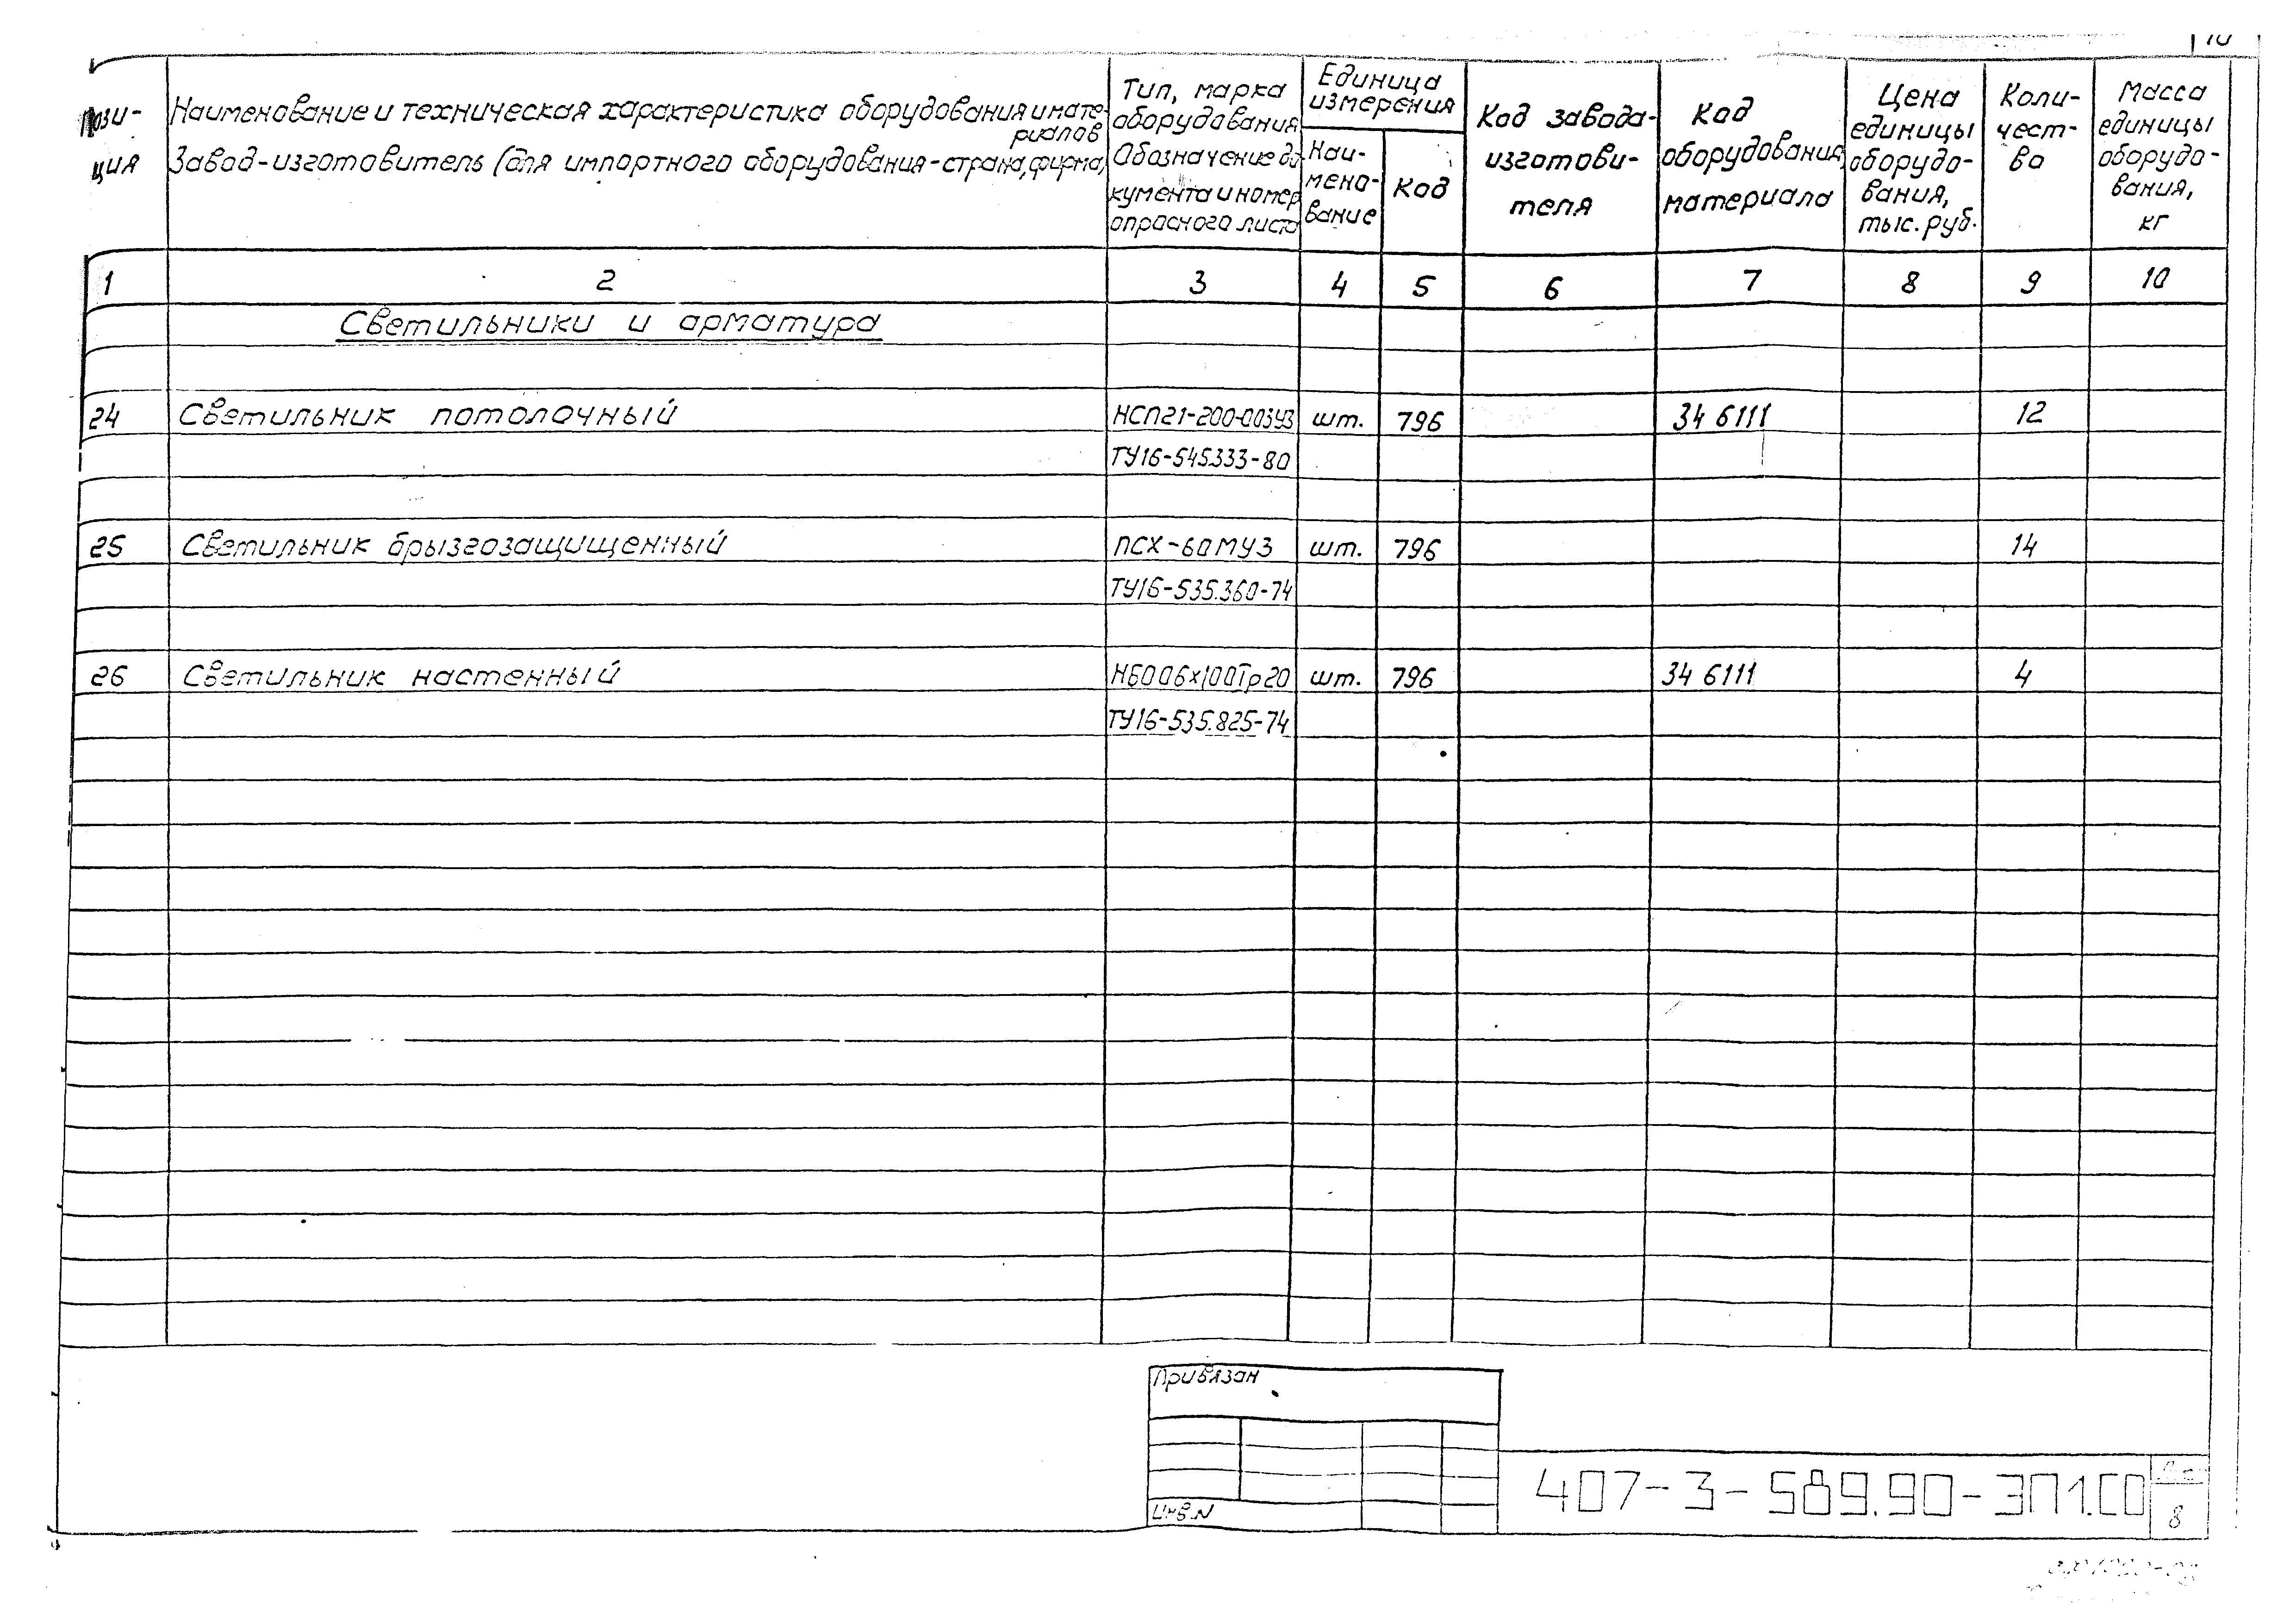 10
Пози-
ция
Наименование и техническая характеристика оборудования и мате-
риалов
Завод-изготовитель (для импортного оборудования-страна, фирма)
Тип, марка
оборудования
Обозначение до
кумента и номер
опросного листа
Единица
измерения
Наи-
мено-
вание
Код
Код завода-
изготови-
теля
Код
оборудования,
материала
Цена
единицы
оборудо-
вания,
тыс. руб.
Коли-
чест-
во
Масса
единицы
оборудо-
вания,
кг
1 2 3 4 5 6 7 8 9 10
Светильники и арматура
24 Светильник потолочный НСП21-200-003У3 шт. 796 34 6111 12
ТУ16-545.333-80
25 Светильник брызгозащищенный ПСХ-60МУ3 шт. 796 14
ТУ16-535.360-74
26 Светильник настенный НБ006х100Тр20 шт. 796 34 6111 4
ТУ16-535.825-74
Привязан
Инв.N
407-3-589.90-ЭП1.СО
8